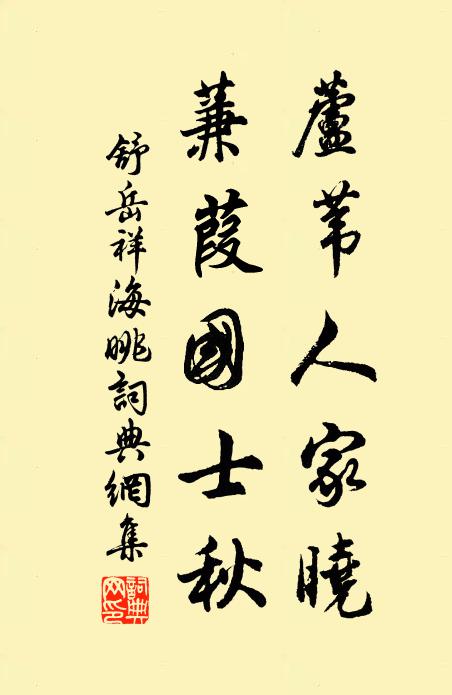 蘆苇人家曉
蒹葭國士秋
舒岳祥海眺詞典網集
詞典網印